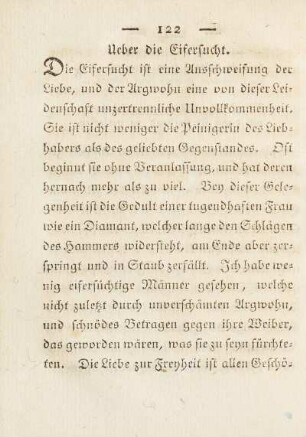 — 122 —
Ueber die Eifersucht.
Die Eifersucht ist eine Ausschweifung der
Liebe, und der Argwohn eine von dieser Lei-
denschaft unzertrennliche Unvollkommenheit.
Sie ist nicht weniger die Peinigerin des Lieb-
habers als des geliebten Gegenstandes. Oft
beginnt sie ohne Veranlassung, und hat deren
hernach mehr als zu viel. Bey dieser Gele-
genheit ist die Gedult einer tugendhaften Frau
wie ein Diamant, welcher lange den Schlägen
des Hammers widersteht, am Ende aber zer-
springt und in Staub zerfällt. Ich habe we-
nig eifersüchtige Männer gesehen, welche
nicht zuletzt durch unverschämten Argwohn,
und schnödes Betragen gegen ihre Weiber,
das geworden wären, was sie zu seyn fürchte-
ten. Die Liebe zur Freyheit ist allen Geschö-